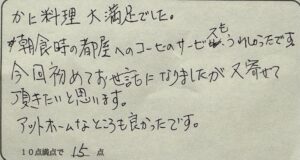 かに料理 大満足でした。
朝食時の部屋へのコーヒーのサービスも、うれしかったです
今回初めてお世話になりましたが又寄せて
頂きたいと思います。
アットホームなところも良かったです。
10点満点で 15 点